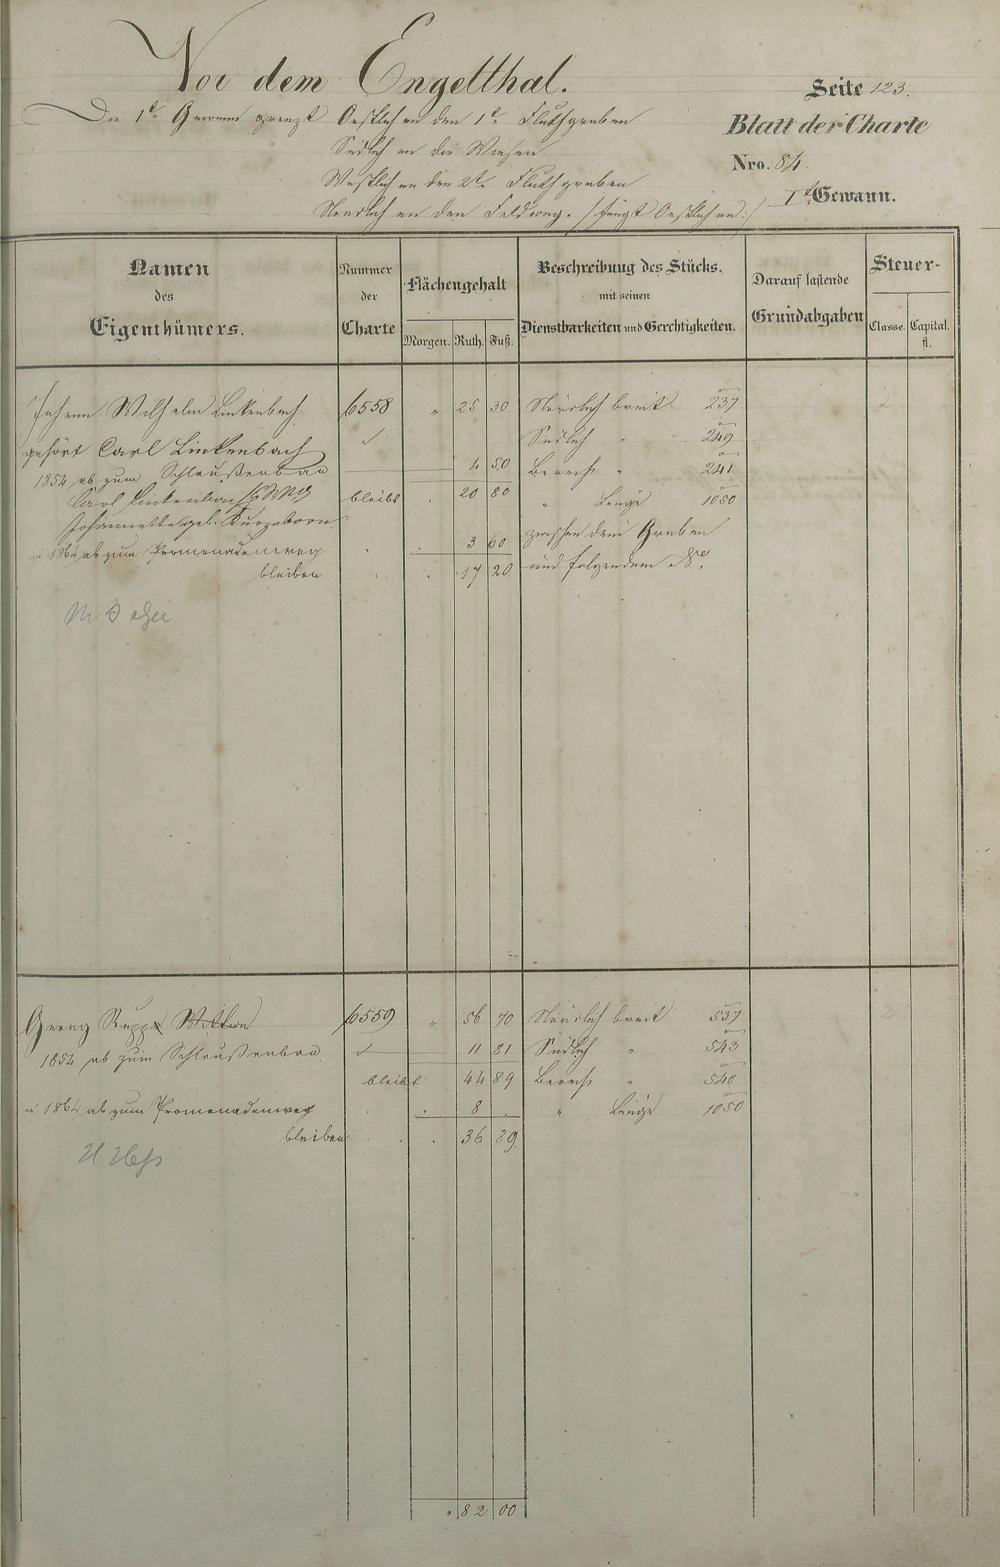 Vor dem Engelthal.
Seite 123.
Die 1te Gewann grenzt Oestlich an den 1te Fluthgraben
Blatt der Charte
Südlich an die Wiesen
Nro. 84
Westlich an den 2te Fluthgraben
Ite Gewann.
Nördlich an den Feldweg. /: fängt Oestlich an :/
Namen des Eigenthümers.
Nummer der Charte
Flächengehalt
Morgen. Ruth. Fuß.
Beschreibung des Stücks, mit seinen Dienstbarkeiten und Gerechtigkeiten.
Darauf lastende Grundabgaben
Steuer-
Classe. Capital. fl.
Johann Wilhelm Linkenbach 6558 " 25 30 Nördlich breit 237
gehört Carl Linkenbach Südlich " 249
1854 ab zum Schleußenbau 4 50 Berech " 241
Carl Linkenbach bleibt . 20 80 " Länge 1050
Johannette geb. Kurzeborn zwischen dem Graben
1864 ab zum Promenadenweg . . 3 60
bleiben . . 17 20 und folgendem No.
Georg Rupp Wittwe 6559 " 56 70 Nördlich breit 537
1854 ab zum Schleußenbau 11 81 Südlich " 543
bleibt 44 89 Berech " 540
1864 ab zum Promenadenweg . . 8 . " Länge 1050
bleiben . . 36 89.
H Heß
. 82 00